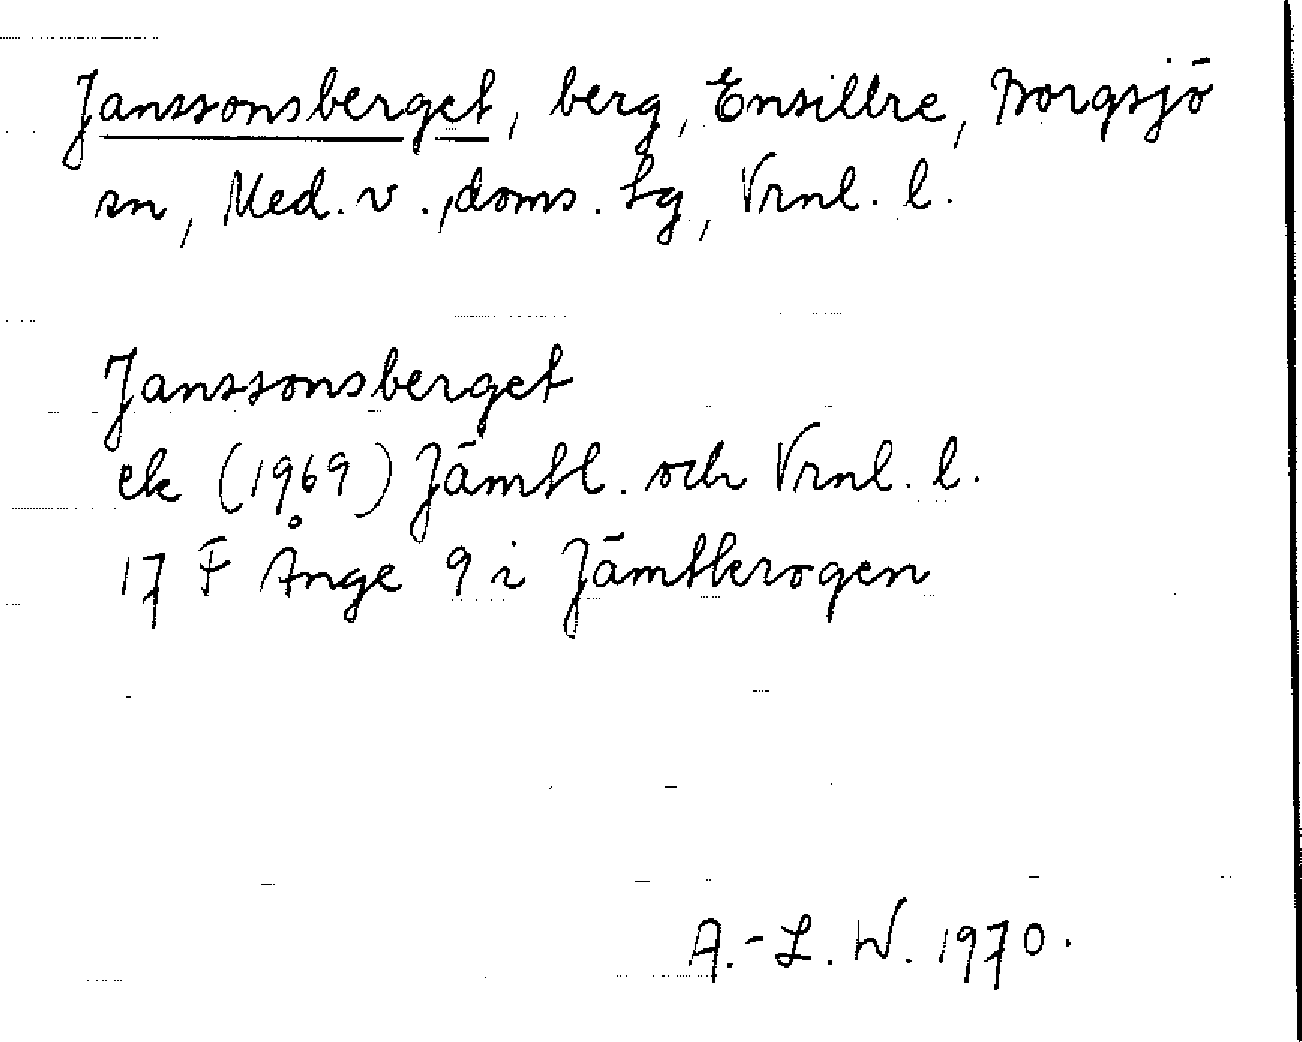 Janssonsberget, berg, Ensillre, Borgsjö
sn, Med. v., doms. lg, Vrnl. l.
Janssonsberget
ek (1969) Jämtl. och Vrnl. l.
17 F Ånge 9 i Jämtkrogen
A.-L. W. 1970.